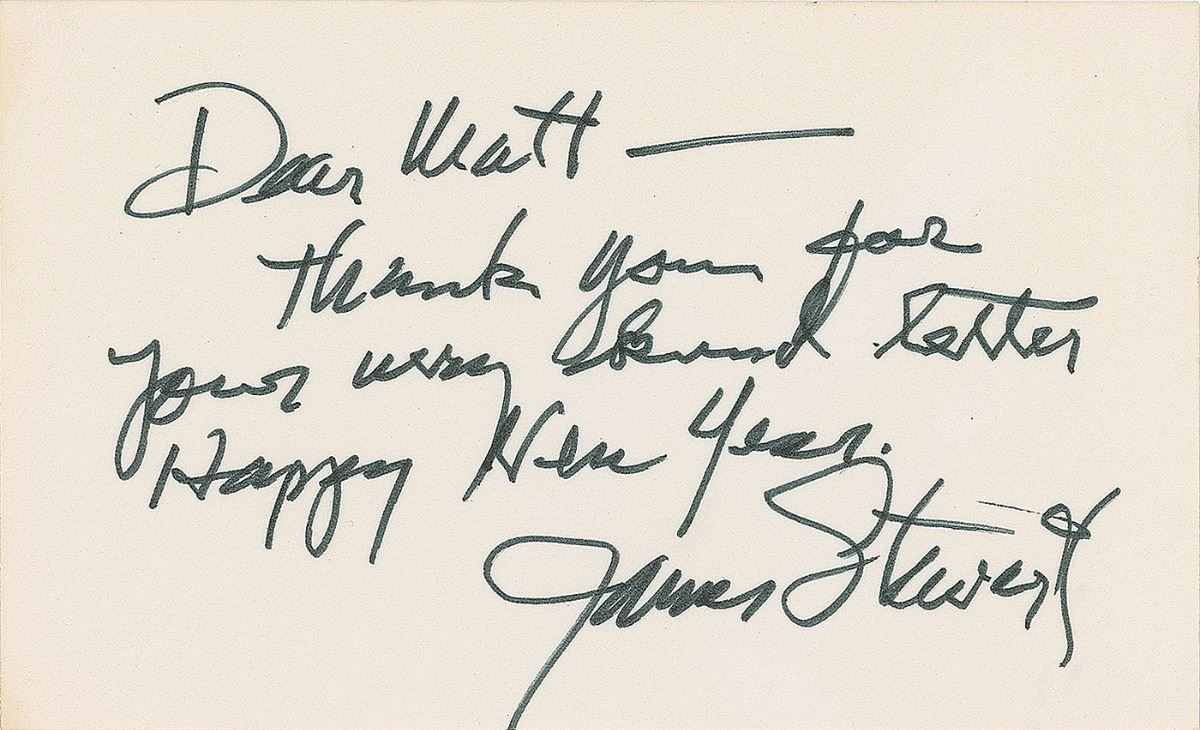 Dear Matt —
Thank you for
your very kind letter
Happy New Year.
James Stewart